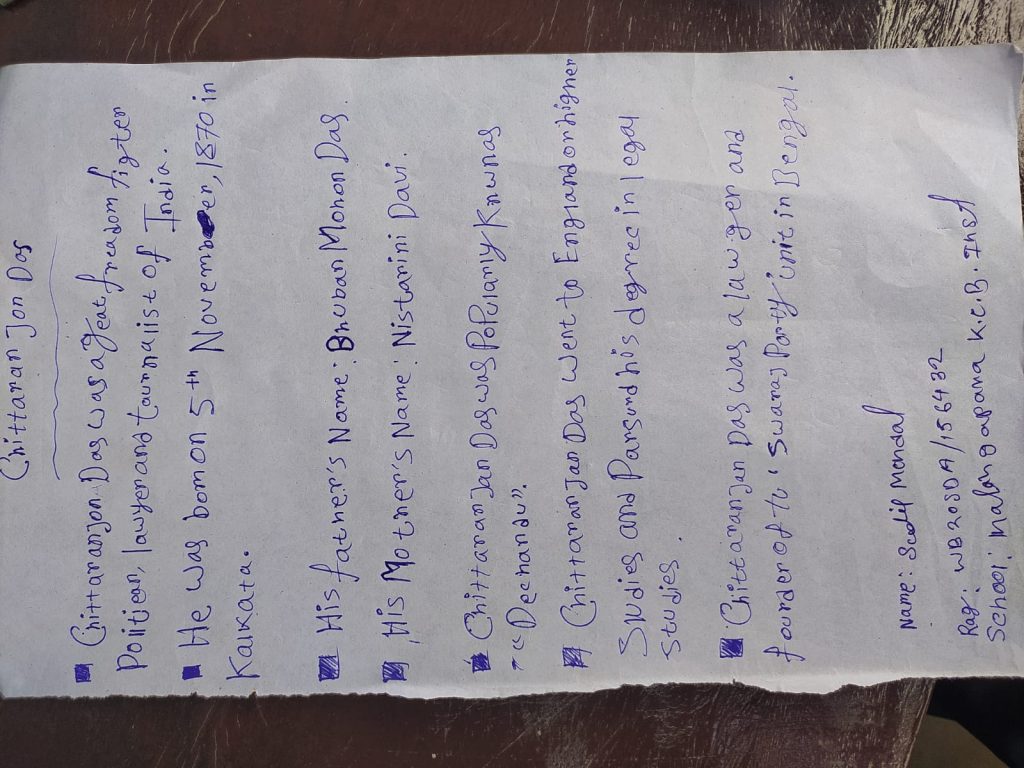 Chittaranjon Das
Chittaranjon Das was a great freadom figter
Politican, lawyer and Jaurnalist of India.
He was born on 5th November, 1870 in
Kalkata.
His father's Name: Bhuban Mohon Das.
His Mother's Name: Nistarini Davi.
Chittaranjan Das was Popularly Knwn as
"Dechandu".
Chittaranjan Das went to England or higher
Sudies and Parsund his degree in legal
studies.
Chittaranjan Das was a lawyer and
founder of th 'Swaraj Party' unit in Bengal.
Name: Sudip Mondal
Rag: WB20SDA/156432
School: Malangapara K.C.B. Inst